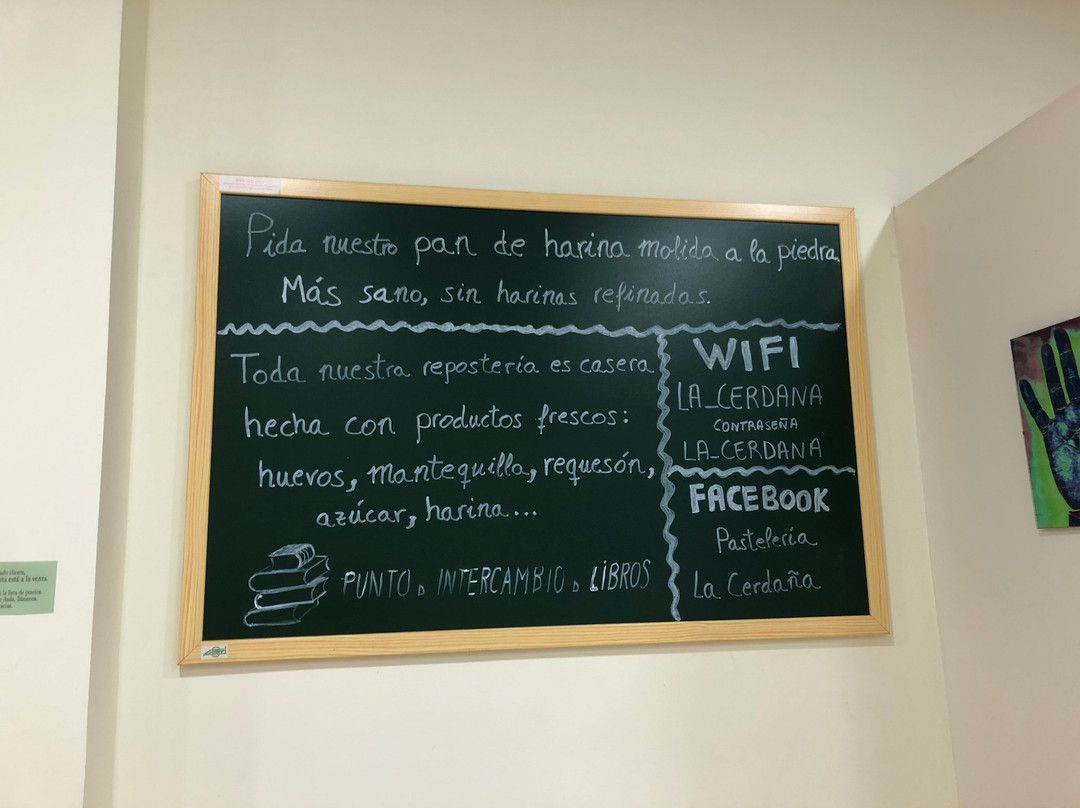 Pida nuestro pan de harina molida a la piedra.
Más sano, sin harinas refinadas.
Toda nuestra repostería es casera
hecha con productos frescos:
huevos, mantequilla, requesón,
azúcar, harina...
PUNTO D INTERCAMBIO D LIBROS
WIFI
LA_CERDANA
CONTRASEÑA
LA_CERDANA
FACEBOOK
Pastelería
La Cerdaña
está a la venta.
la lista de precios.